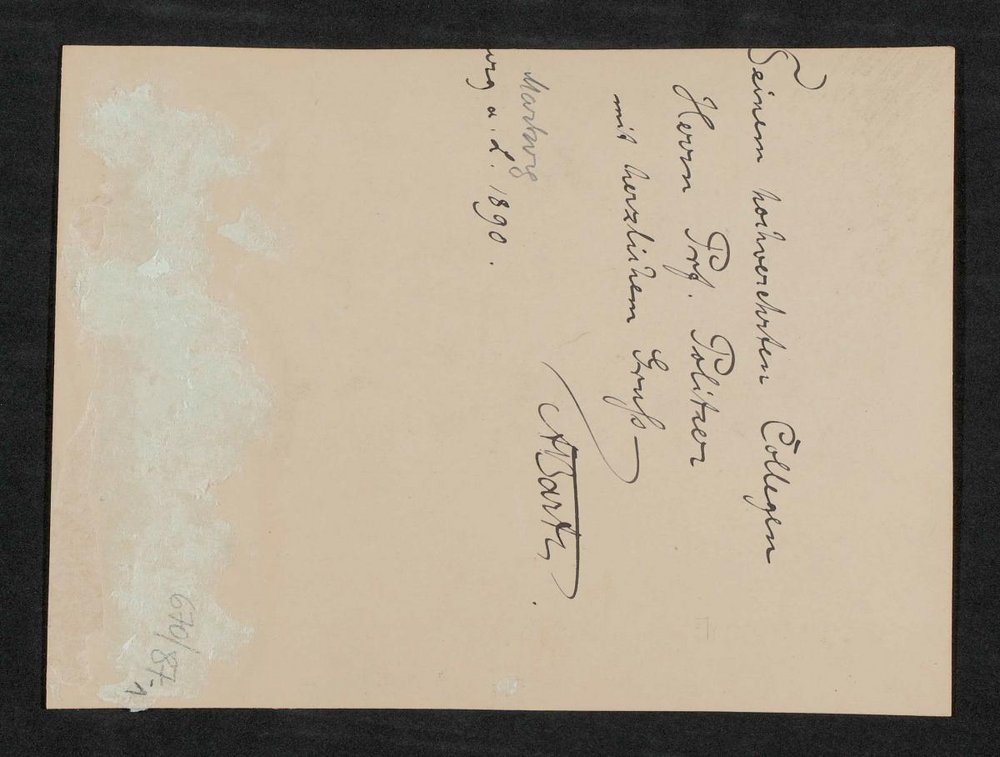 Seinem hochverehrten Collegen
Herrn Prof. Politzer
mit herzlichem Gruß
ABarth.
Marburg
urg a. L. 1890.
670/87-1